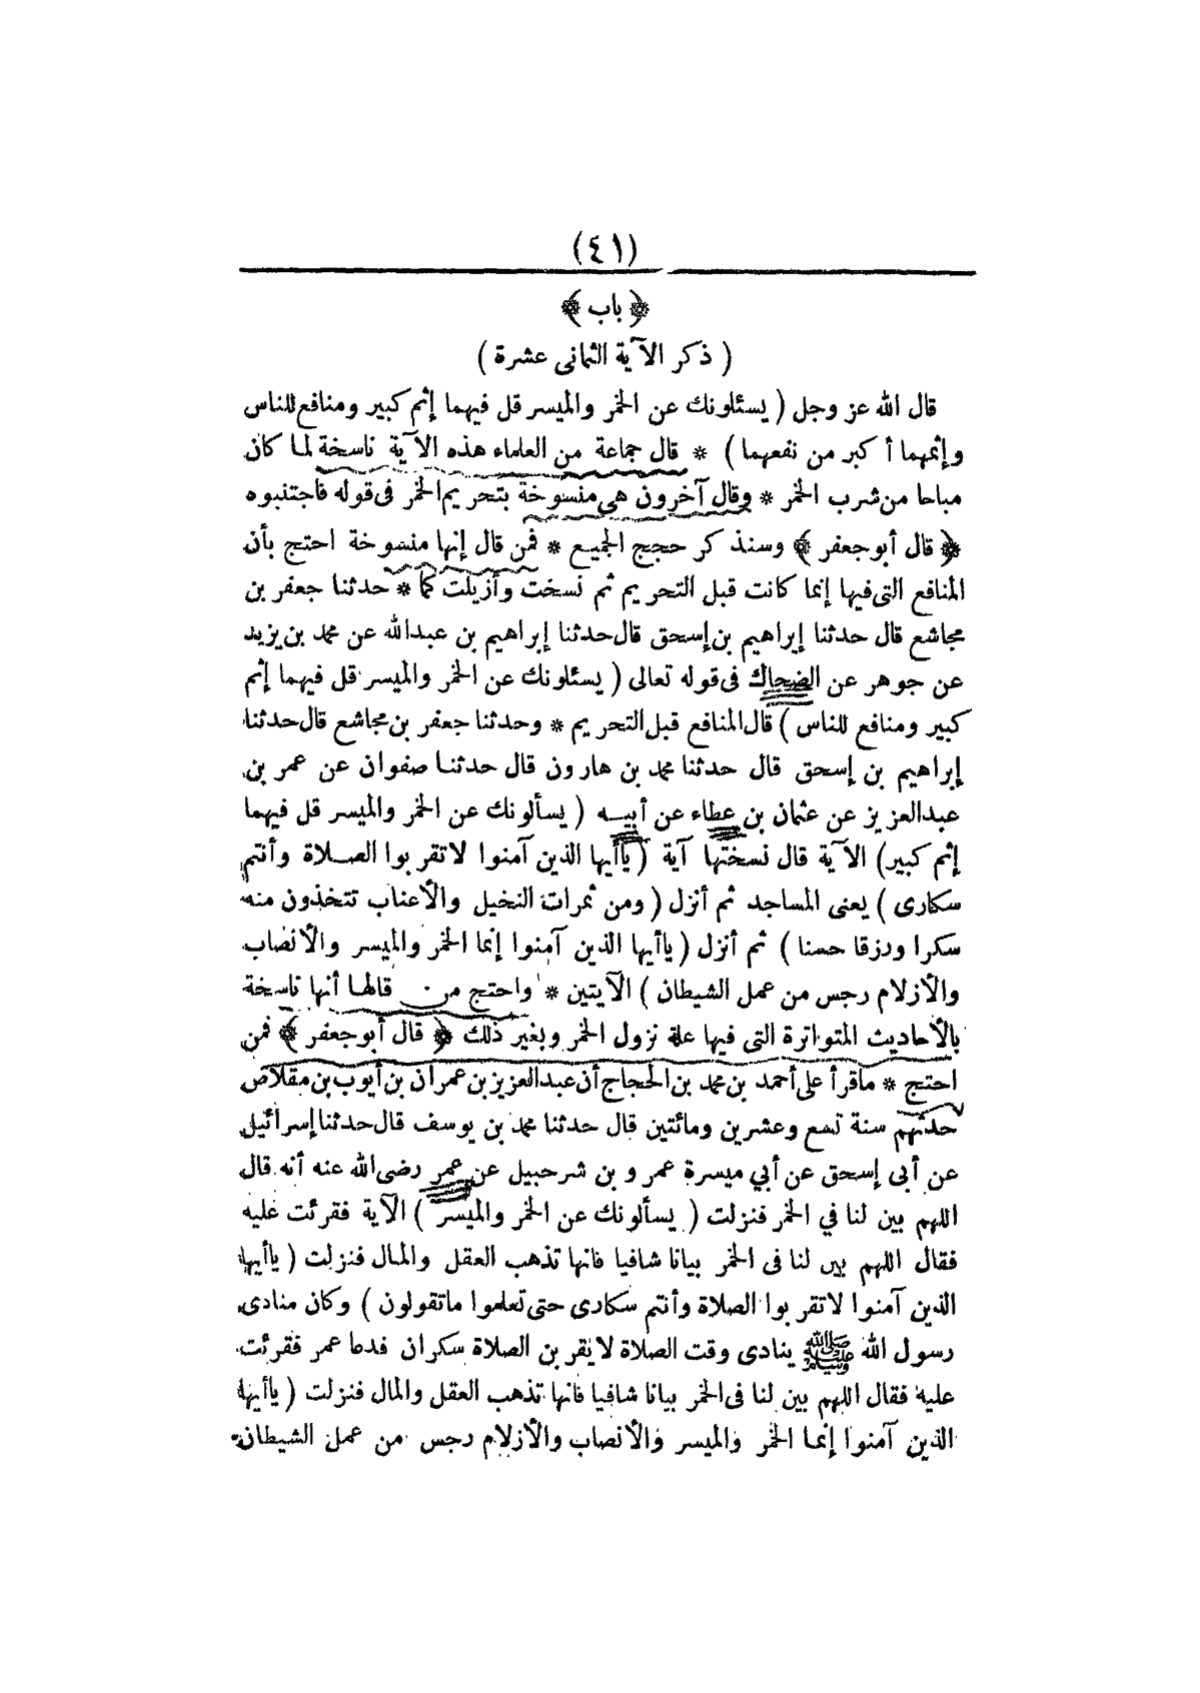 (٤١)
﴿ باب ﴾
( ذكر الآية الثانى عشرة )
قال الله عز وجل ( يسئلونك عن الخمر والميسر قل فيهما إثم كبير ومنافع للناس
وإثمهما أكبر من نفعهما ) * قال جماعة من العلماء هذه الآية ناسخة لما كان
مباحا من شرب الخمر * وقال آخرون هى منسوخة بتحريم الخمر فى قوله فاجتنبوه
﴿ قال أبو جعفر ﴾ وسنذكر حجج الجميع * فمن قال إنها منسوخة احتج بأن
المنافع التى فيها إنما كانت قبل التحريم ثم نسخت وأزيلت كما * حدثنا جعفر بن
مجاشع قال حدثنا إبراهيم بن إسحق قال حدثنا إبراهيم بن عبدالله عن محمد بن يزيد
عن جوهر عن الضحاك فى قوله تعالى ( يسئلونك عن الخمر والميسر قل فيهما إثم
كبير ومنافع للناس ) قال المنافع قبل التحريم * وحدثنا جعفر بن مجاشع قال حدثنا
إبراهيم بن إسحق قال حدثنا محمد بن هارون قال حدثنا صفوان عن عمر بن
عبدالعزيز عن عثمان بن عطاء عن أبيه ( يسألونك عن الخمر والميسر قل فيهما
إثم كبير) الآية قال نسختها آية ( ياأيها الذين آمنوا لاتقربوا الصلاة وأنتم
سكارى ) يعنى المساجد ثم أنزل ( ومن ثمرات النخيل والأعناب تتخذون منه
سكرا ورزقا حسنا ) ثم أنزل ( ياأيها الذين آمنوا إنما الخمر والميسر والأنصاب
والأزلام رجس من عمل الشيطان ) الآيتين * واحتج من قالها أنها ناسخة
بالأحاديث المتواترة التى فيها علة نزول الخمر وبغير ذلك ﴿ قال أبو جعفر ﴾ فمن
احتج * ماقرأ على أحمد بن محمد بن الحجاج أن عبدالعزيز بن عمران بن أيوب بن مقلاص
حدثهم سنة تسع وعشرين ومائتين قال حدثنا محمد بن يوسف قال حدثنا إسرائيل
عن أبى إسحق عن أبي ميسرة عمرو بن شرحبيل عن عمر رضى الله عنه أنه قال
اللهم بين لنا في الخمر فنزلت ( يسألونك عن الخمر والميسر ) الآية فقرئت عليه
فقال اللهم بين لنا فى الخمر بيانا شافيا فانها تذهب العقل والمال فنزلت ( ياأيها
الذين آمنوا لاتقربوا الصلاة وأنتم سكارى حتى تعلموا ماتقولون ) وكان منادى
رسول الله ﷺ ينادى وقت الصلاة لايقربن الصلاة سكران فدعا عمر فقرئت
عليه فقال اللهم بين لنا فى الخمر بيانا شافيا فانها تذهب العقل والمال فنزلت ( ياأيها
الذين آمنوا إنما الخمر والميسر والأنصاب والأزلام رجس من عمل الشيطان